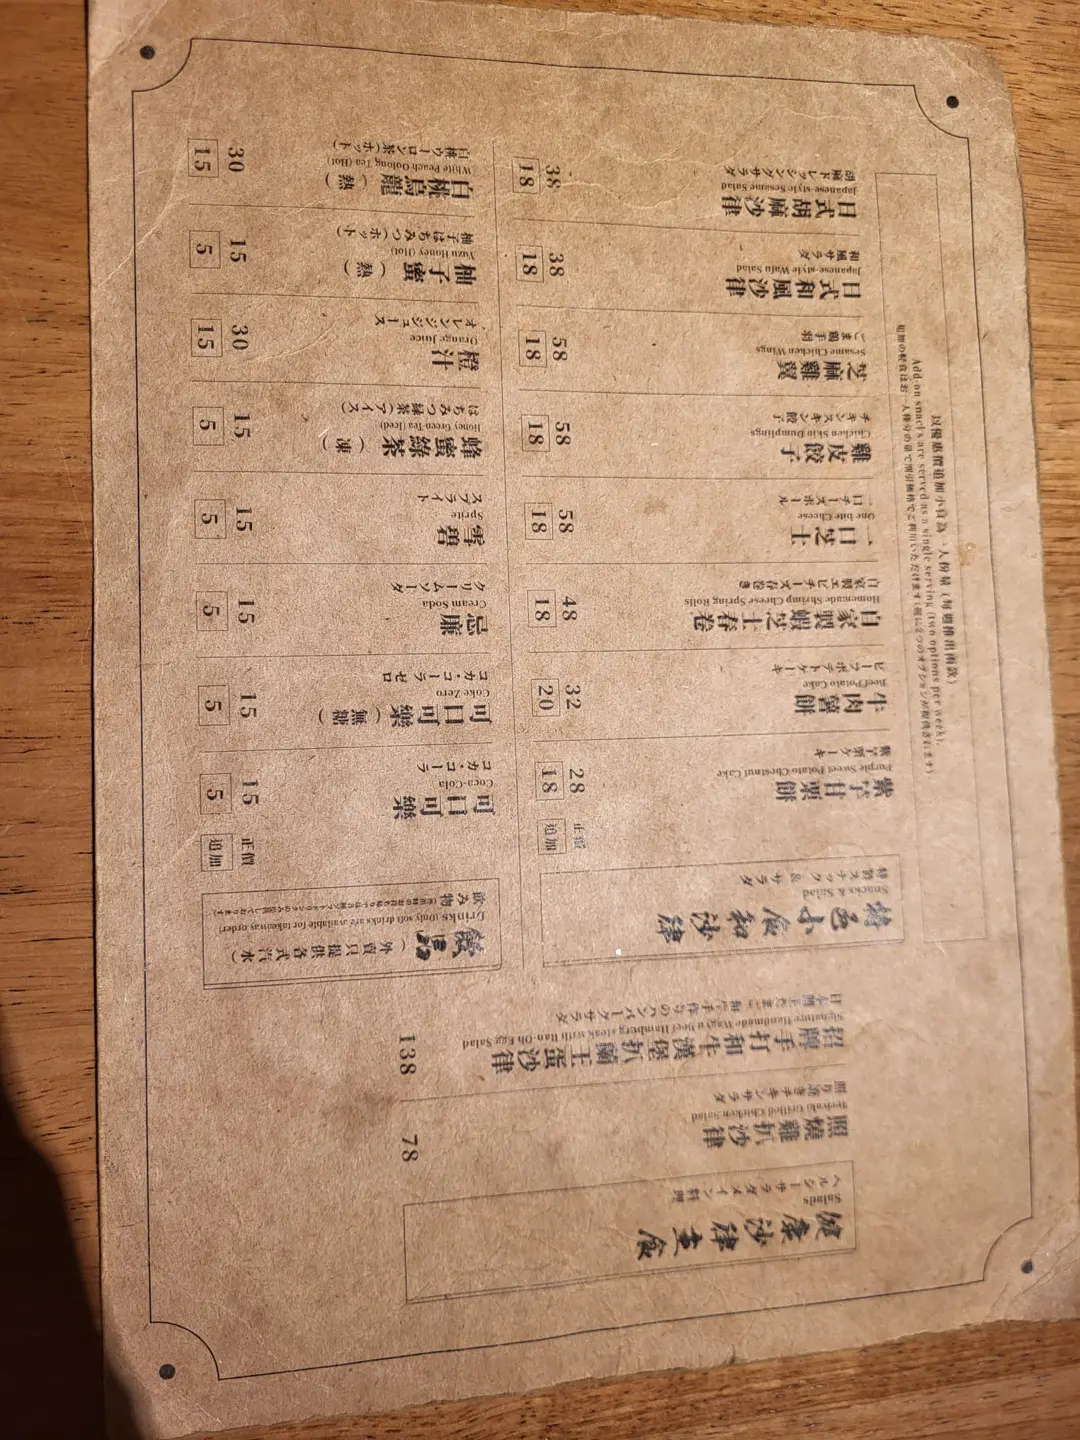 健康沙律主食
Salads
ヘルシーサラダメイン料理
照燒雞扒沙律
Teriyaki Grilled Chicken Salad
照り焼きチキンサラダ
78
招牌手打和牛漢堡扒蘭王蛋沙律
Signature Handmade Wagyu Beef Hamburg steak with Ran-Oh Egg Salad
138
特色小食和沙律
Snacks & Salad
特製スナック & サラダ
正價
追加
紫芋甘栗餅
Purple Sweet Potato Chestnut Cake
28
18
牛肉薯餅
Beef Potato Cake
ビーフポテトケーキ
32
20
自家製蝦芝士春卷
Homemade Shrimp Cheese Spring Rolls
自家製エビチーズ春巻き
48
18
一口芝士
One bite Cheese
一口チーズボール
58
18
雞皮餃子
Chicken Skin Dumplings
チキンスキン餃子
58
18
芝麻雞翼
Sesame Chicken Wings
ごま鶏手羽
58
18
日式和風沙律
Japanese-style Wafu Salad
和風サラダ
38
18
日式胡麻沙律
Japanese-style Sesame Salad
胡麻ドレッシングサラダ
38
18
以優惠價追加小食為一人份量（每週推出兩款）
Add-on snacks are served as a single serving (two options per week).
飲品（外賣只提供各式汽水）
Drinks (only soft drinks are available for takeaway order)
飲み物
正價
追加
可口可樂
Coca-Cola
コカ・コーラ
15
5
可口可樂（無糖）
Coke Zero
コカ・コーラ ゼロ
15
5
忌廉
Cream Soda
クリームソーダ
15
5
雪碧
Sprite
スプライト
15
5
蜂蜜綠茶（凍）
Honey Green Tea (Iced)
はちみつ緑茶（アイス）
15
5
橙汁
Orange Juice
オレンジジュース
30
15
柚子蜜（熱）
Yuzu Honey (Hot)
柚子はちみつ（ホット）
15
5
白桃烏龍（熱）
White Peach Oolong Tea (Hot)
白桃ウーロン茶（ホット）
30
15